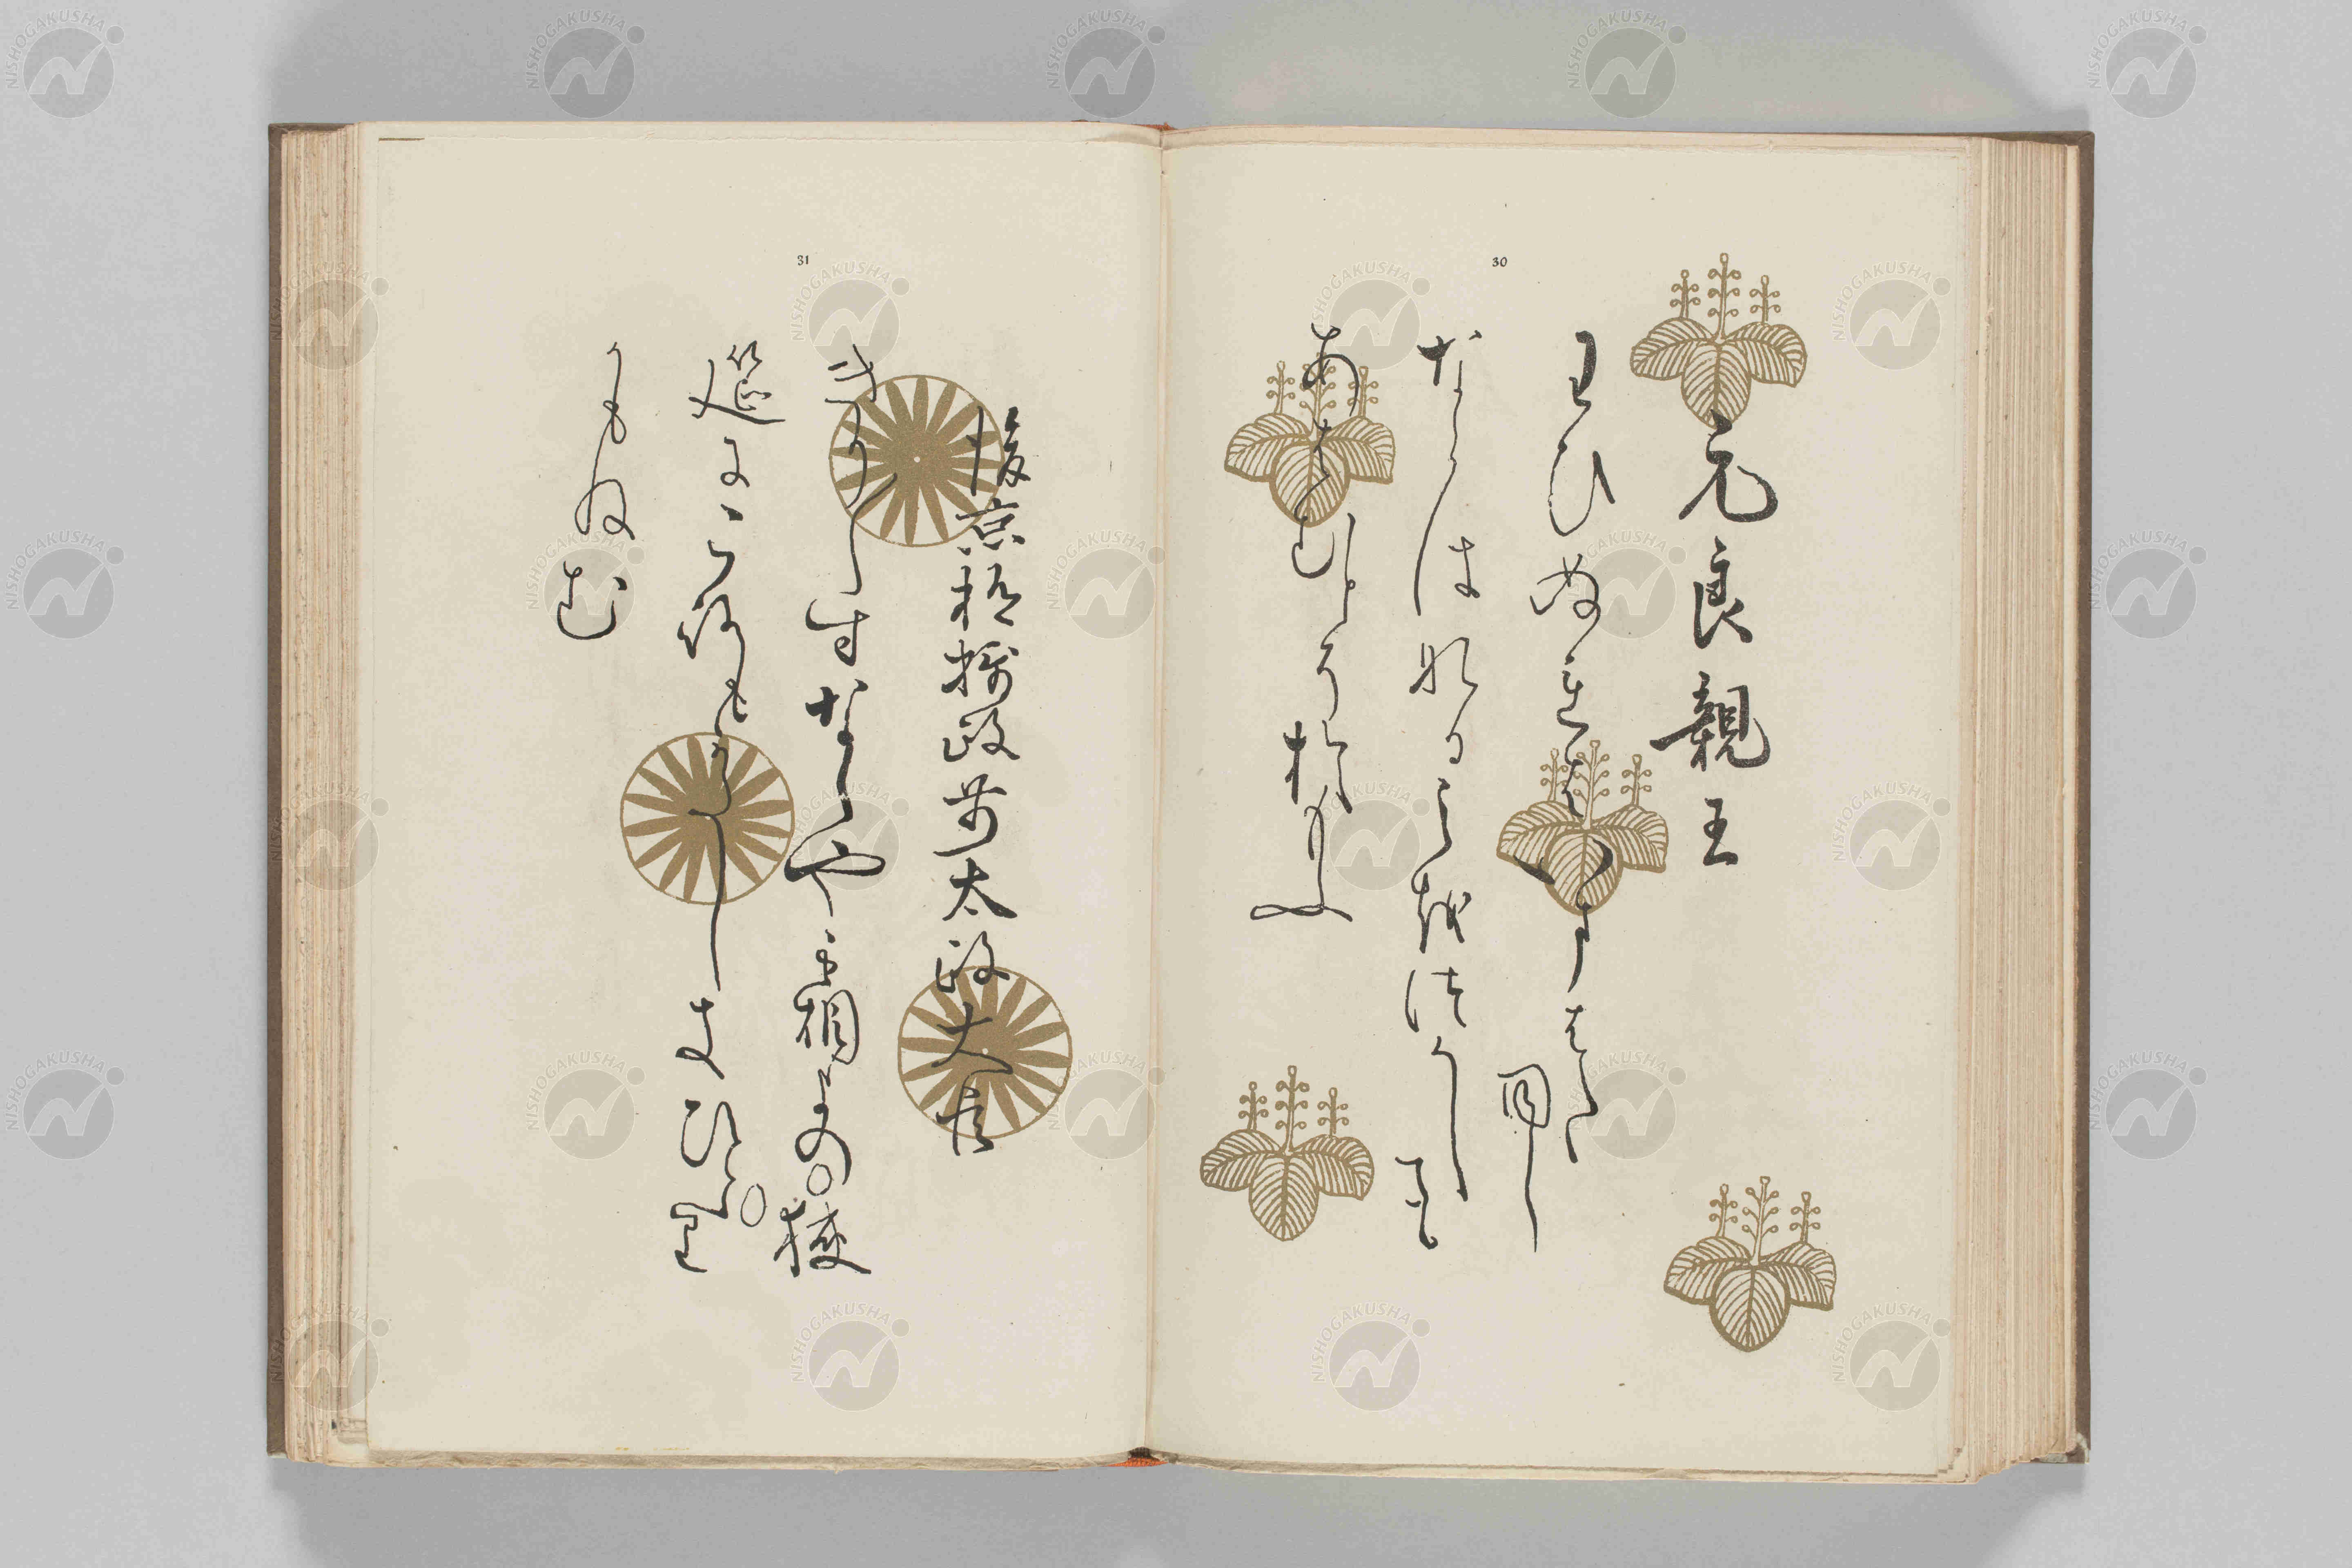 30
元良親王
わひぬれはいまはた同し
なにはなるみをつくしても
あはむとそ於もふ
31
後京極摂政前太政大臣
きり〱すなくや霜よの狭
筵にころもかたしきひとり
かもねむ
NISHOGAKUSHA